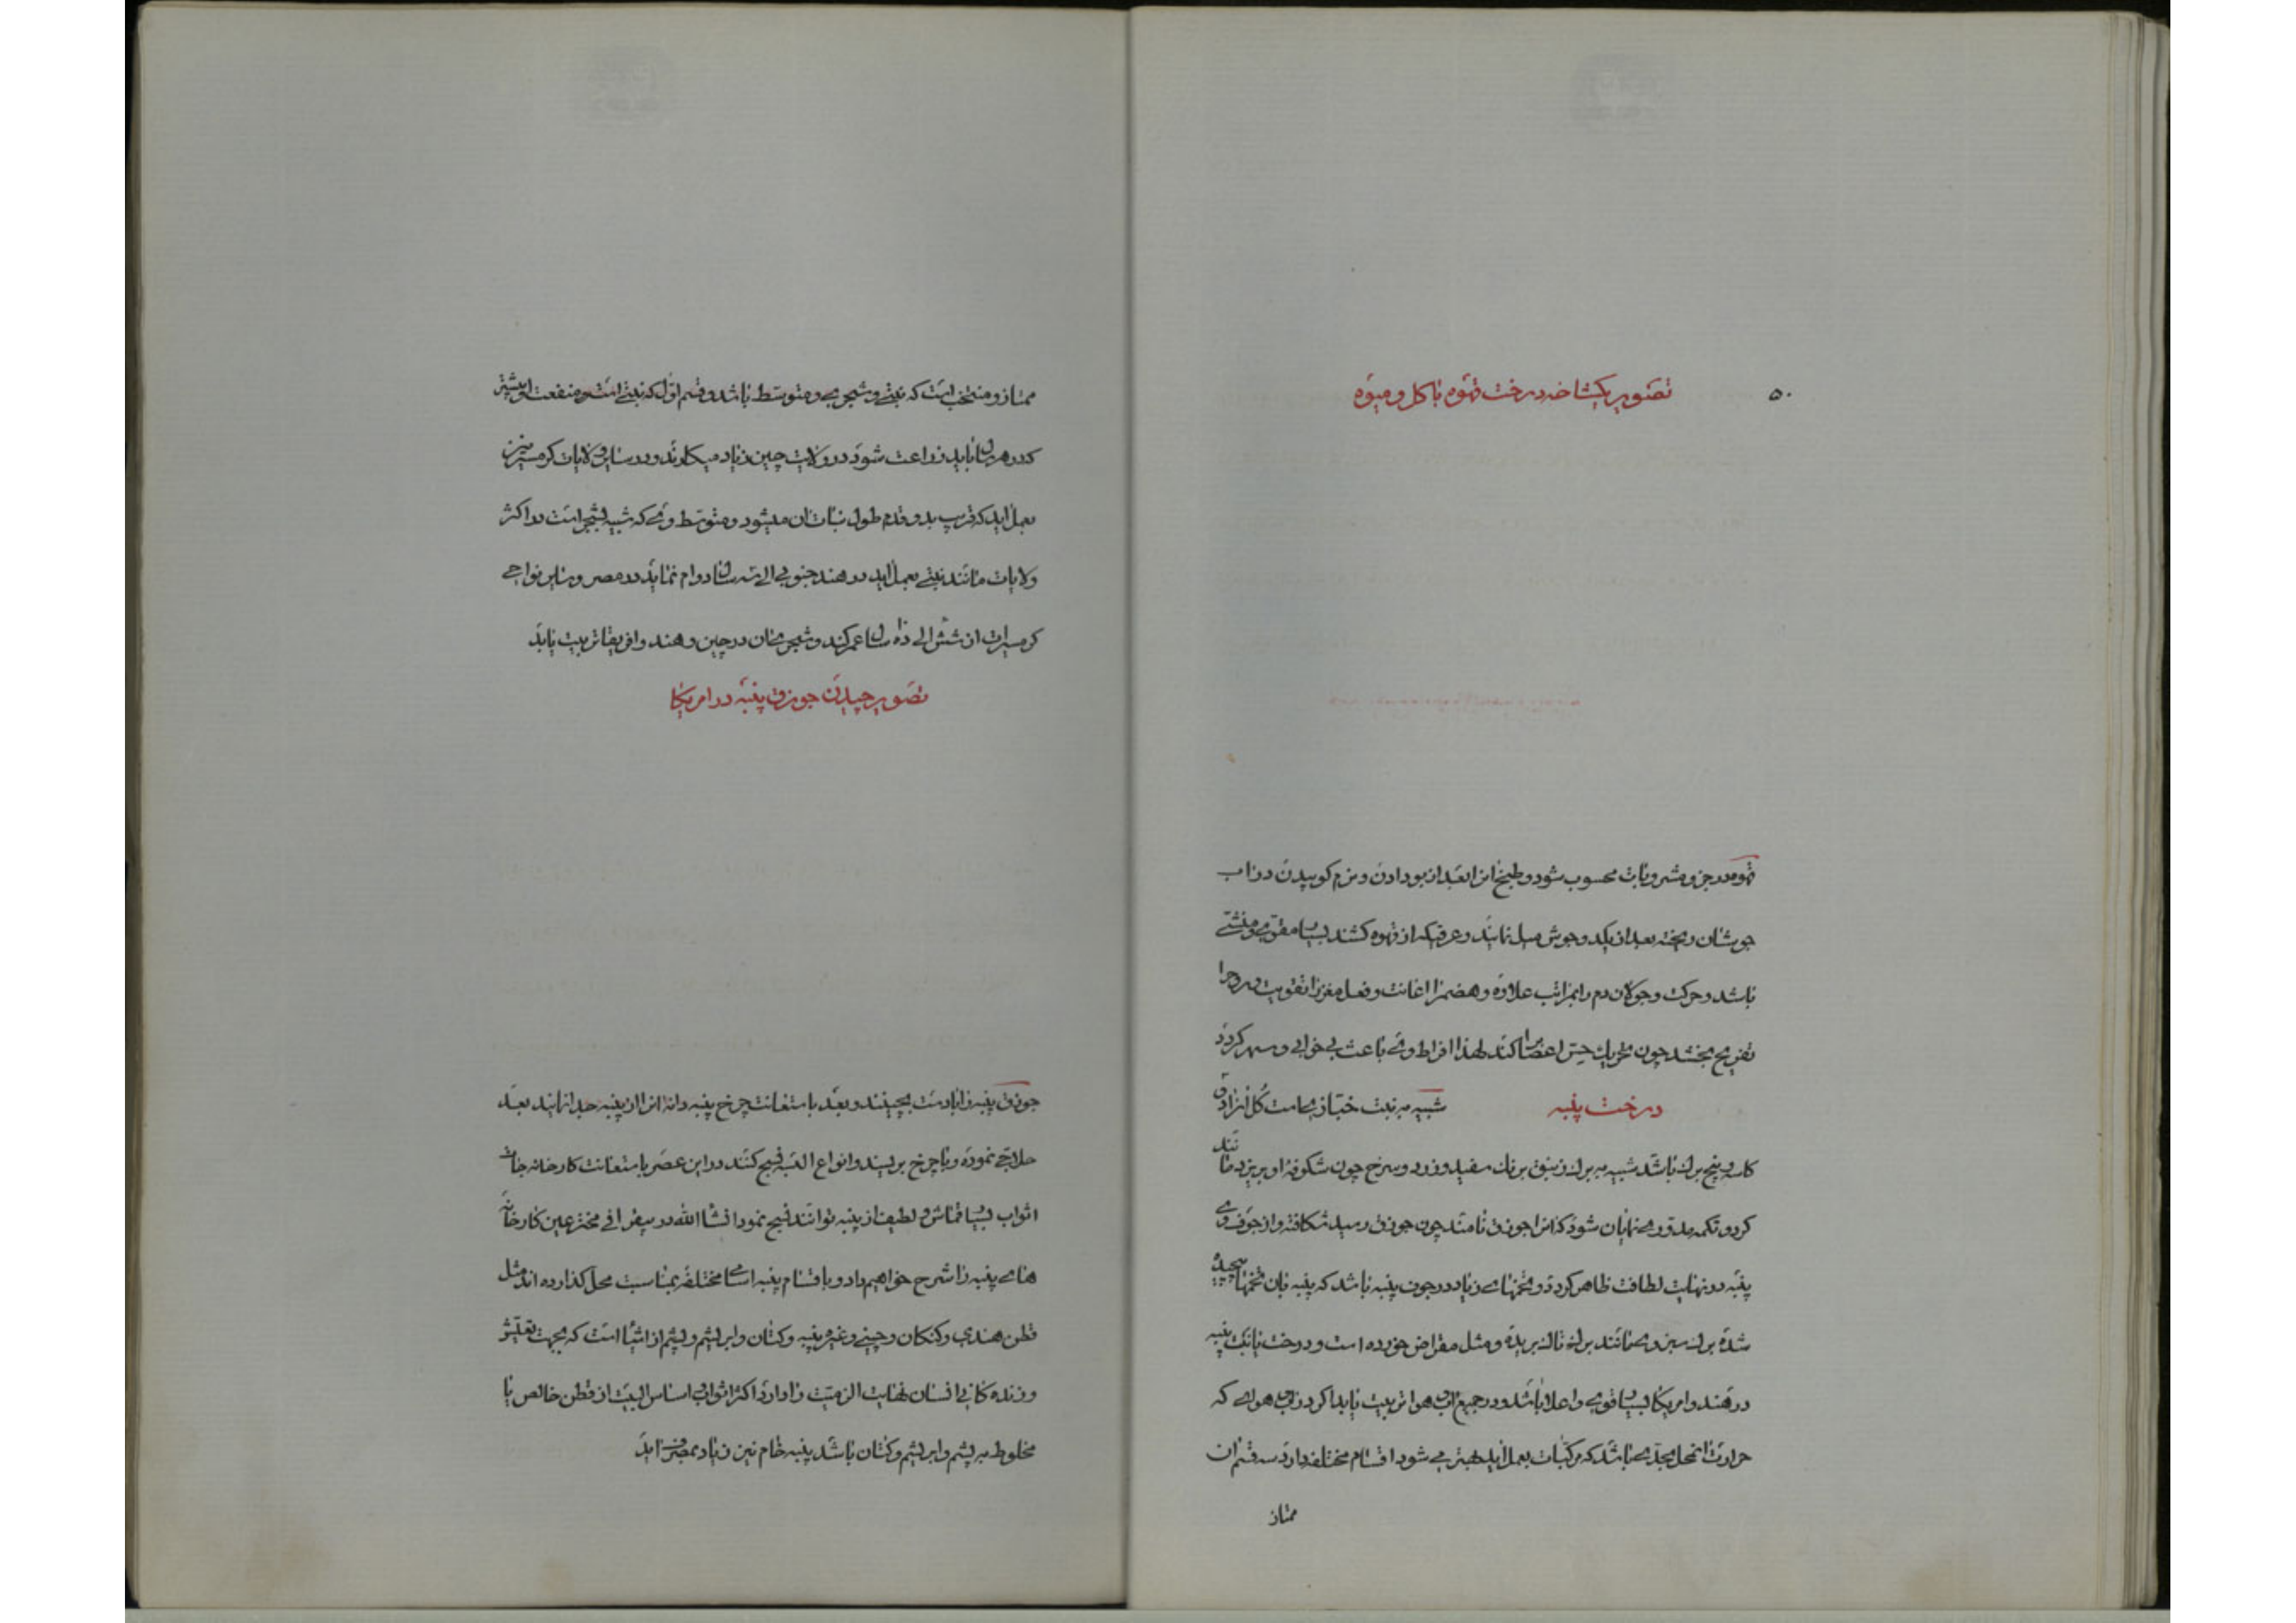 ۵۰
تصویر یکشاخه درخت قهوه با کل و میوه
قهوه در جزو مشروبات محسوب شود و طبخ انرا بعد از بو دادن و نرم کوبیدن در اب
جوشان ریخته بعد از یکدو جوش میل نمایند و عرقیکه از قهوه کشند بسیار مقوی و منشی
باشد و حرکت و جولان دم را بمراتب علاوه و هضم را اعانت و فعل مغز را تقویت و روح را
تفریح بخشد چون تحریک حس اعضا را کند لهذا افراط وی باعث بی خوابی و سهر کردد
درخت پنبه شبیه به نبت خبازی است کل انرا دو
کاسه و پنج برک باشد شبیه به برک زنبق بر نک سفید و زرد و سرخ چون شکوفه او بریزد مانند
کردو تکمه مدوری نمایان شود که انرا جوزق نامند چون جوزق رسید شکافته و از جوف وی
پنبه در نهایت لطافت ظاهر کردد و تخمهای زیاد در جوف پنبه باشد که پنبه بان تخمها پیچیده
شده برک سبز وی مانند برک تاک بریده و مثل مقراض خورده است و درخت یا نبت پنبه
در هند و امریکا بسیار قوی و اعلا باشد و در جمیع اب هوا تربیت یابد اکر در اب هوائی که
حرارت انمحل بحدی باشد که مرکبات بعمل اید بهتر می شود اقسام مختلفه دارد سه قسم ان
ممتاز
ممتاز و منتخب است که نبتی و شجری و متوسط باشد و قسم اول که نبتی است و منفعت او بیشتر
که در هر سال باید زراعت شود در ولایت چین زیاد میکارند و در سایر ولایات کرمسیر نیز
بعمل اید که قریب بدو قدم طول نبات ان میشود و متوسط وی که شبیه بشجر است در اکثر
ولایات مانند نبتی بعمل اید در هند جنوبی الی سه سال دوام نماید در مصر و سایر نواحی
کرمسیرات از شش الی ده سال عمر کند و شجری ان در چین و هند و افریقا تربیت یابد
تصویر چیدن جوزق پنبه در امریکا
جوزق پنبه را با دست بچینند و بعد باستعانت چرخ پنبه دانه انرا از پنبه جدا نمایند بعد
حلاجی نموده و با چرخ بریسند و انواع البسه نسج کنند در این عصر باستعانت کارخانه جات
اثواب بسیار قماش و لطیف از پنبه توانند نسج نمود انشاالله در بیغرافی مخترعین کارخانه
های پنبه را شرح خواهیم داد و باقسام پنبه اسامی مختلفه بمناسبت محل کذارده اند مثل
قطن هندی و کنکان و چینی و غیره پنبه و کتان و ابریشم و پشم از اشیا است که بجهت تعیش
و زنده کانی انسان نهایت الزمیت را دارد اکثر اثواب اساس البیت از قطن خالص یا
مخلوط به پشم و ابریشم و کتان باشد پنبه خام نیز زیاد بمصرف اید